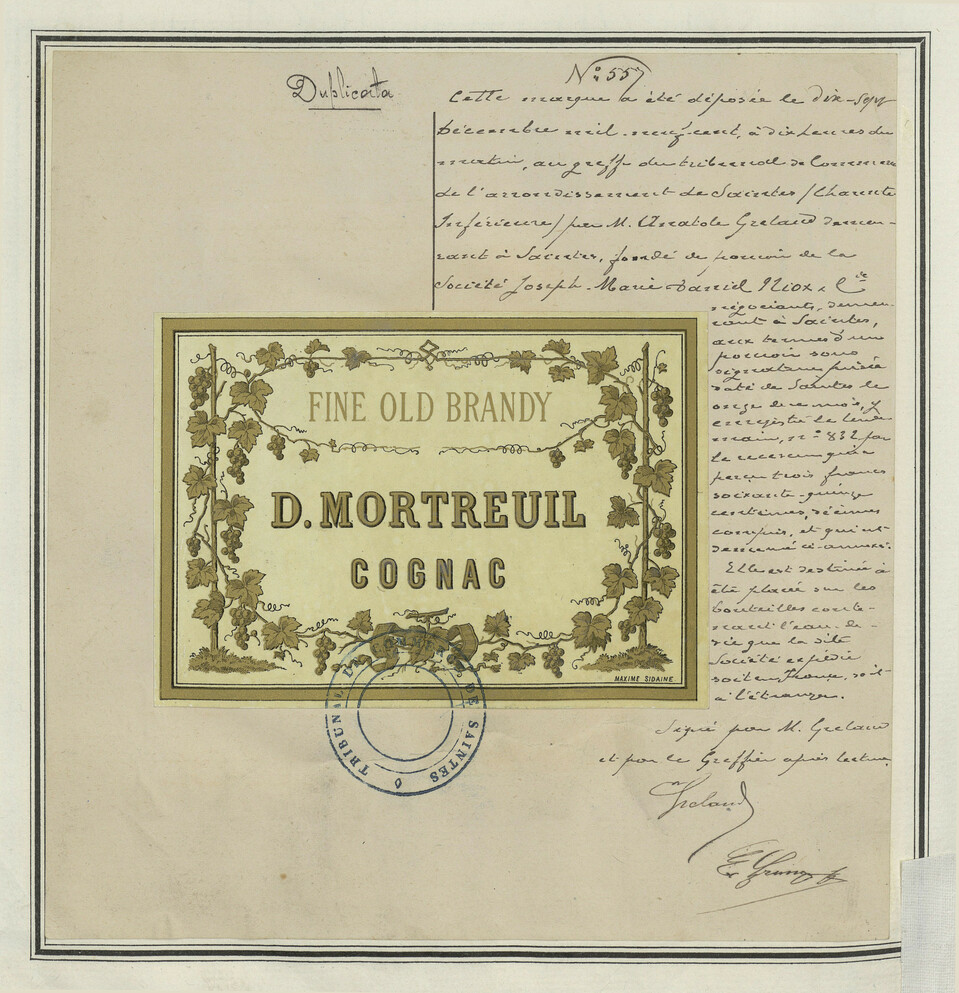 Duplicata
N° 557
Cette marque a été déposée le dix-sept
Décembre mil-neuf-cent, à dix heures du
matin, au greffe du tribunal de Commerce
de l'arrondissement de Saintes (Charente
Inférieure) par M. Anatole Grelaud demeu-
rant à Saintes, fondé de pouvoir de la
Société Joseph-Marie-Daniel Niox & Cie
négociants, demeu-
rant à Saintes,
aux termes d'un
pouvoir sous
signature privée
daté de Saintes le
onze de ce mois, y
enregistré le lende-
main, n° 832 par
le receveur qui a
perçu trois francs
soixante-quinze
centimes, décimes
compris, et qui est
demeuré ci-annexé.
Elle est destinée à
être placée sur les
bouteilles conte-
nant l'eau-de-
vie que la dite
Société expédie
soit en France, soit
à l'étranger.
Signé par M. Grelaud
et par le Greffier après lecture.
Grelaud
FINE OLD BRANDY
D. MORTREUIL
COGNAC
MAXIME SIDAINE
TRIBUNAL DE SAINTES